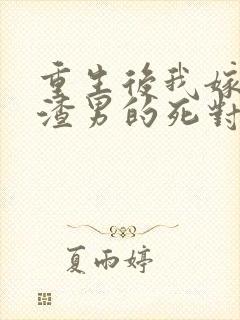 重生後我嫁
渣男的死對
夏雨婷